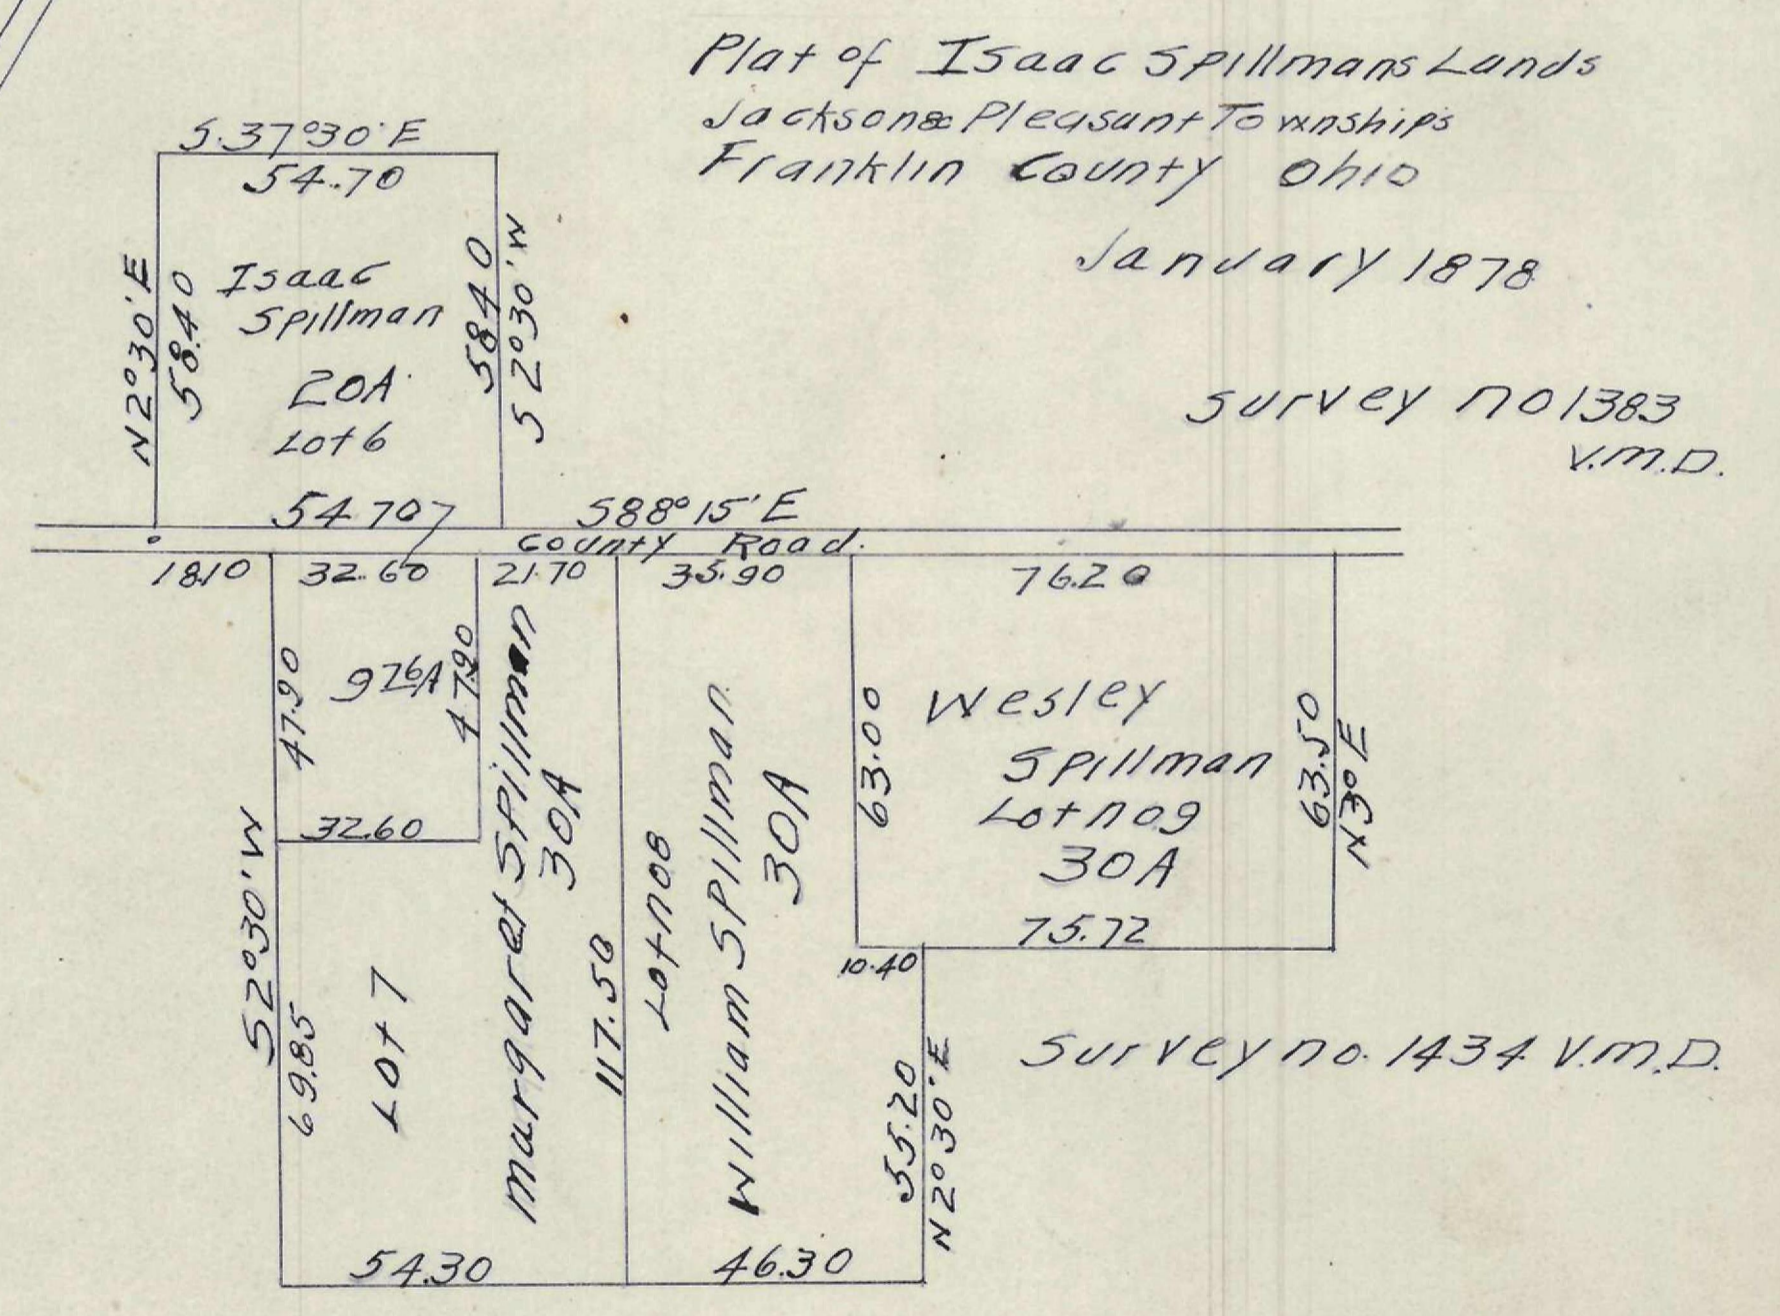 Plat of Isaac Spillmans Lands
Jackson & Pleasant Townships
Franklin County Ohio
January 1878
Survey no 1383
V.M.D.
S.37°30'E
54.70
N2°30'E
58.40
Isaac
Spillman
20A
Lot 6
5840
S2°30'W
54.70
S88°15'E
County Road.
18.10
32.60
21.70
35.90
76.20
47.90
9 76A
47.90
32.60
S2°30'W
69.85
Lot 7
Margaret Spillman
30A
117.50
Lot no 8
William Spillman
30A
63.00
Wesley
Spillman
Lot no 9
30A
63.50
N3°E
75.72
10.40
55.20
N2°30'E
Survey no. 1434 V.M.D.
54.30
46.30